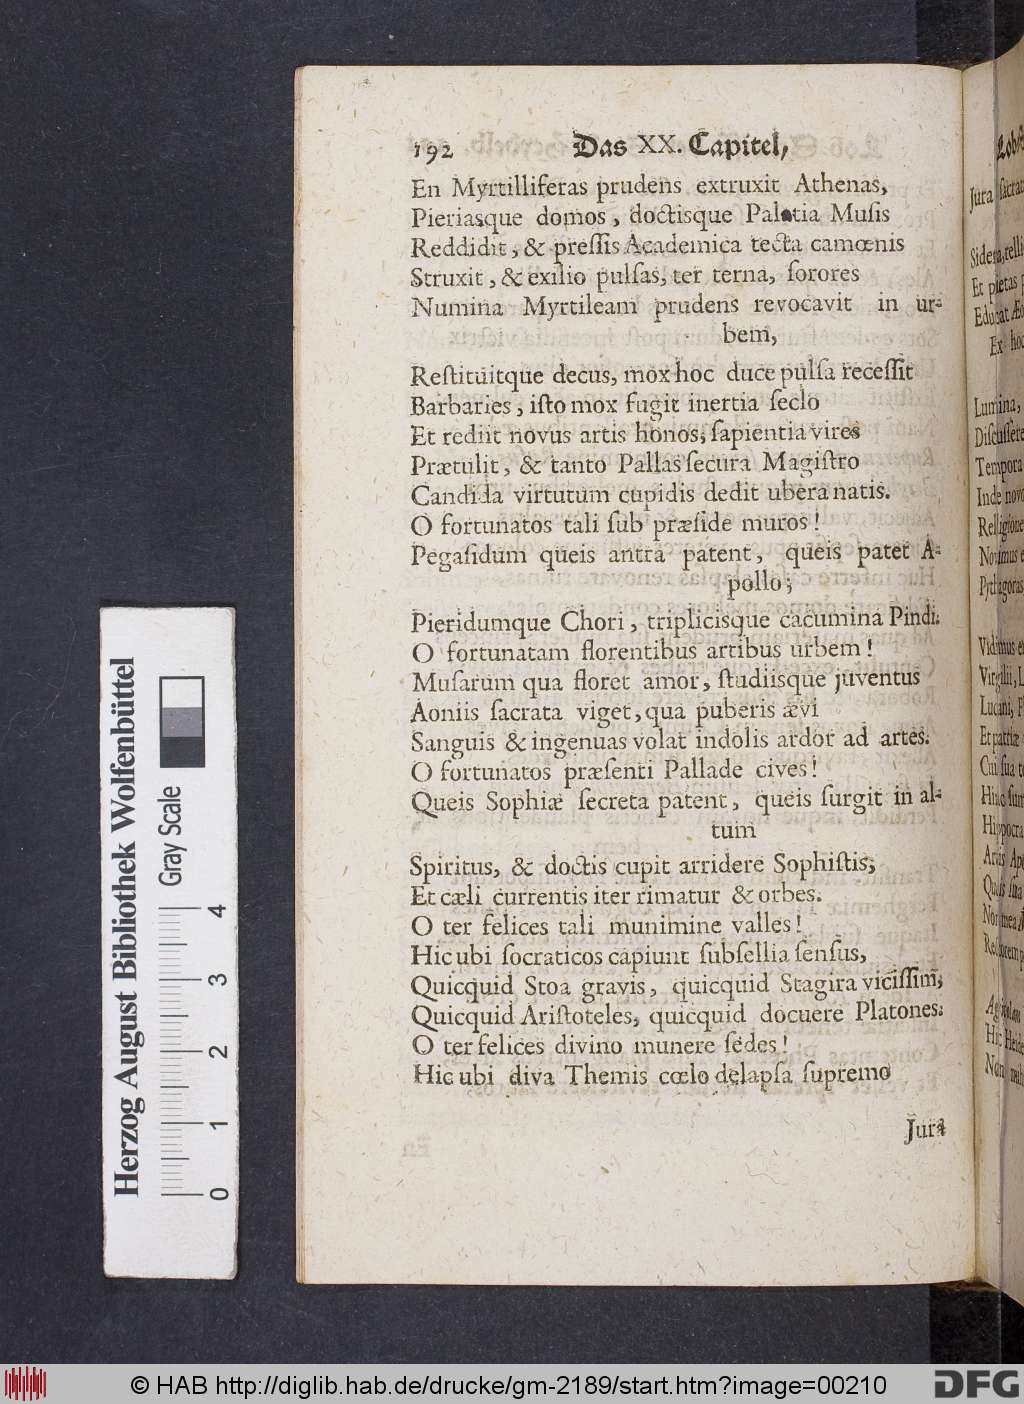 192 Das XX. Capitel,
En Myrtilliferas prudens extruxit Athenas,
Pieriasque domos, doctisque Palatia Muſis
Reddidit, & preſſis Academica tecta camœnis
Struxit, & exilio pulſas, ter terna, ſorores
Numina Myrtileam prudens revocavit in ur-
bem,
Reſtituitque decus, mox hoc duce pulſa receſſit
Barbaries, iſto mox fugit inertia ſeclo
Et rediit novus artis honos, ſapientia vires
Prætulit, & tanto Pallas ſecura Magiſtro
Candida virtutum cupidis dedit ubera natis.
O fortunatos tali ſub præſide muros!
Pegaſidum queis antra patent, queis patet A-
pollo;
Pieridumque Chori, triplicisque cacumina Pindi.
O fortunatam florentibus artibus urbem!
Muſarum qua floret amor, ſtudiisque juventus
Aoniis ſacrata viget, qua puberis ævi
Sanguis & ingenuas volat indolis ardor ad artes.
O fortunatos præſenti Pallade cives!
Queis Sophiæ ſecreta patent, queis ſurgit in al-
tum
Spiritus, & doctis cupit arridere Sophiſtis,
Et cæli currentis iter rimatur & orbes.
O ter felices tali munimine valles!
Hic ubi ſocraticos capiunt ſubſellia ſenſus,
Quicquid Stoa gravis, quicquid Stagira viciſſim,
Quicquid Ariſtoteles, quicquid docuere Platones.
O ter felices divino munere ſedes!
Hic ubi diva Themis cœlo delapſa ſupremo
Jura
Jura
Et pietas
Ex hoc
Lumina,
Tempora
Inde novo
Pythagoras
Vidimus
Virgilii,
Lucani,
Et patriæ
Cui ſua
Herzog August Bibliothek Wolfenbüttel
Gray Scale
0 1 2 3 4
© HAB http://diglib.hab.de/drucke/gm-2189/start.htm?image=00210
DFG